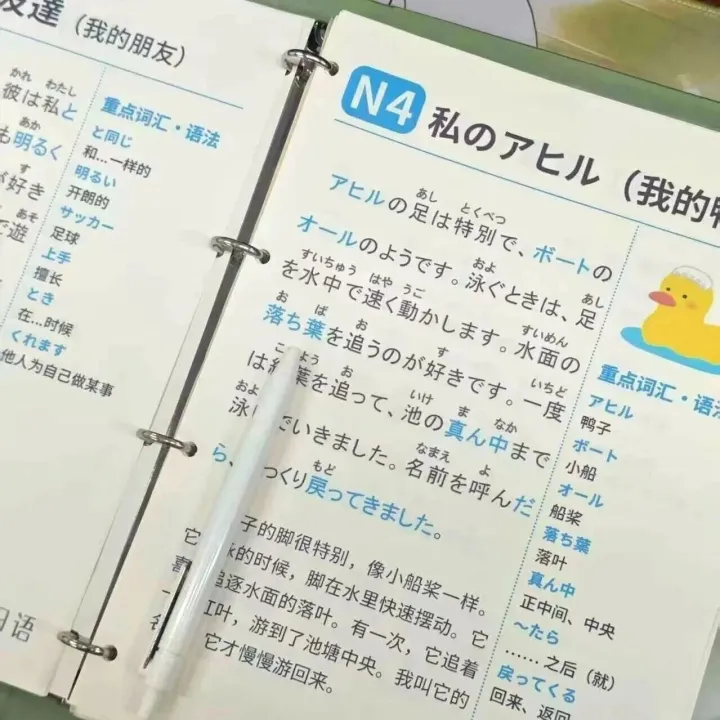 友達（我的朋友）
かれ わたし
彼は私と
あか
も明るく
す
が好き
あそ
で遊
重点词汇・语法
と同じ
和…一样的
明るい
开朗的
サッカー
足球
上手
擅长
とき
在…时候
くれます
他人为自己做某事
日语
N4 私のアヒル（我的鸭
あし とくべつ
アヒルの足は特別で、ボートの
オールのようです。泳ぐときは、足
およ あし
を水中で速く動かします。水面の
すいちゅう はや うご すいめん
落ち葉を追うのが好きです。一度
お ば お す いちど
は紅葉を追って、池の真ん中まで
こ よう お いけ ま なか
泳 でいきました。名前を呼んだ
およ なまえ よ
ら、 っくり戻ってきました。
もど
它 子的脚很特别，像小船桨一样。
喜 泳的时候，脚在水里快速摆动。它
追逐水面的落叶。有一次，它追着
红叶，游到了池塘中央。我叫它的
它才慢慢游回来。
重点词汇・语法
アヒル
鸭子
ボート
小船
オール
船桨
落ち葉
落叶
真ん中
正中间、中央
〜たら
……之后（就）
戻ってくる
回来、返回